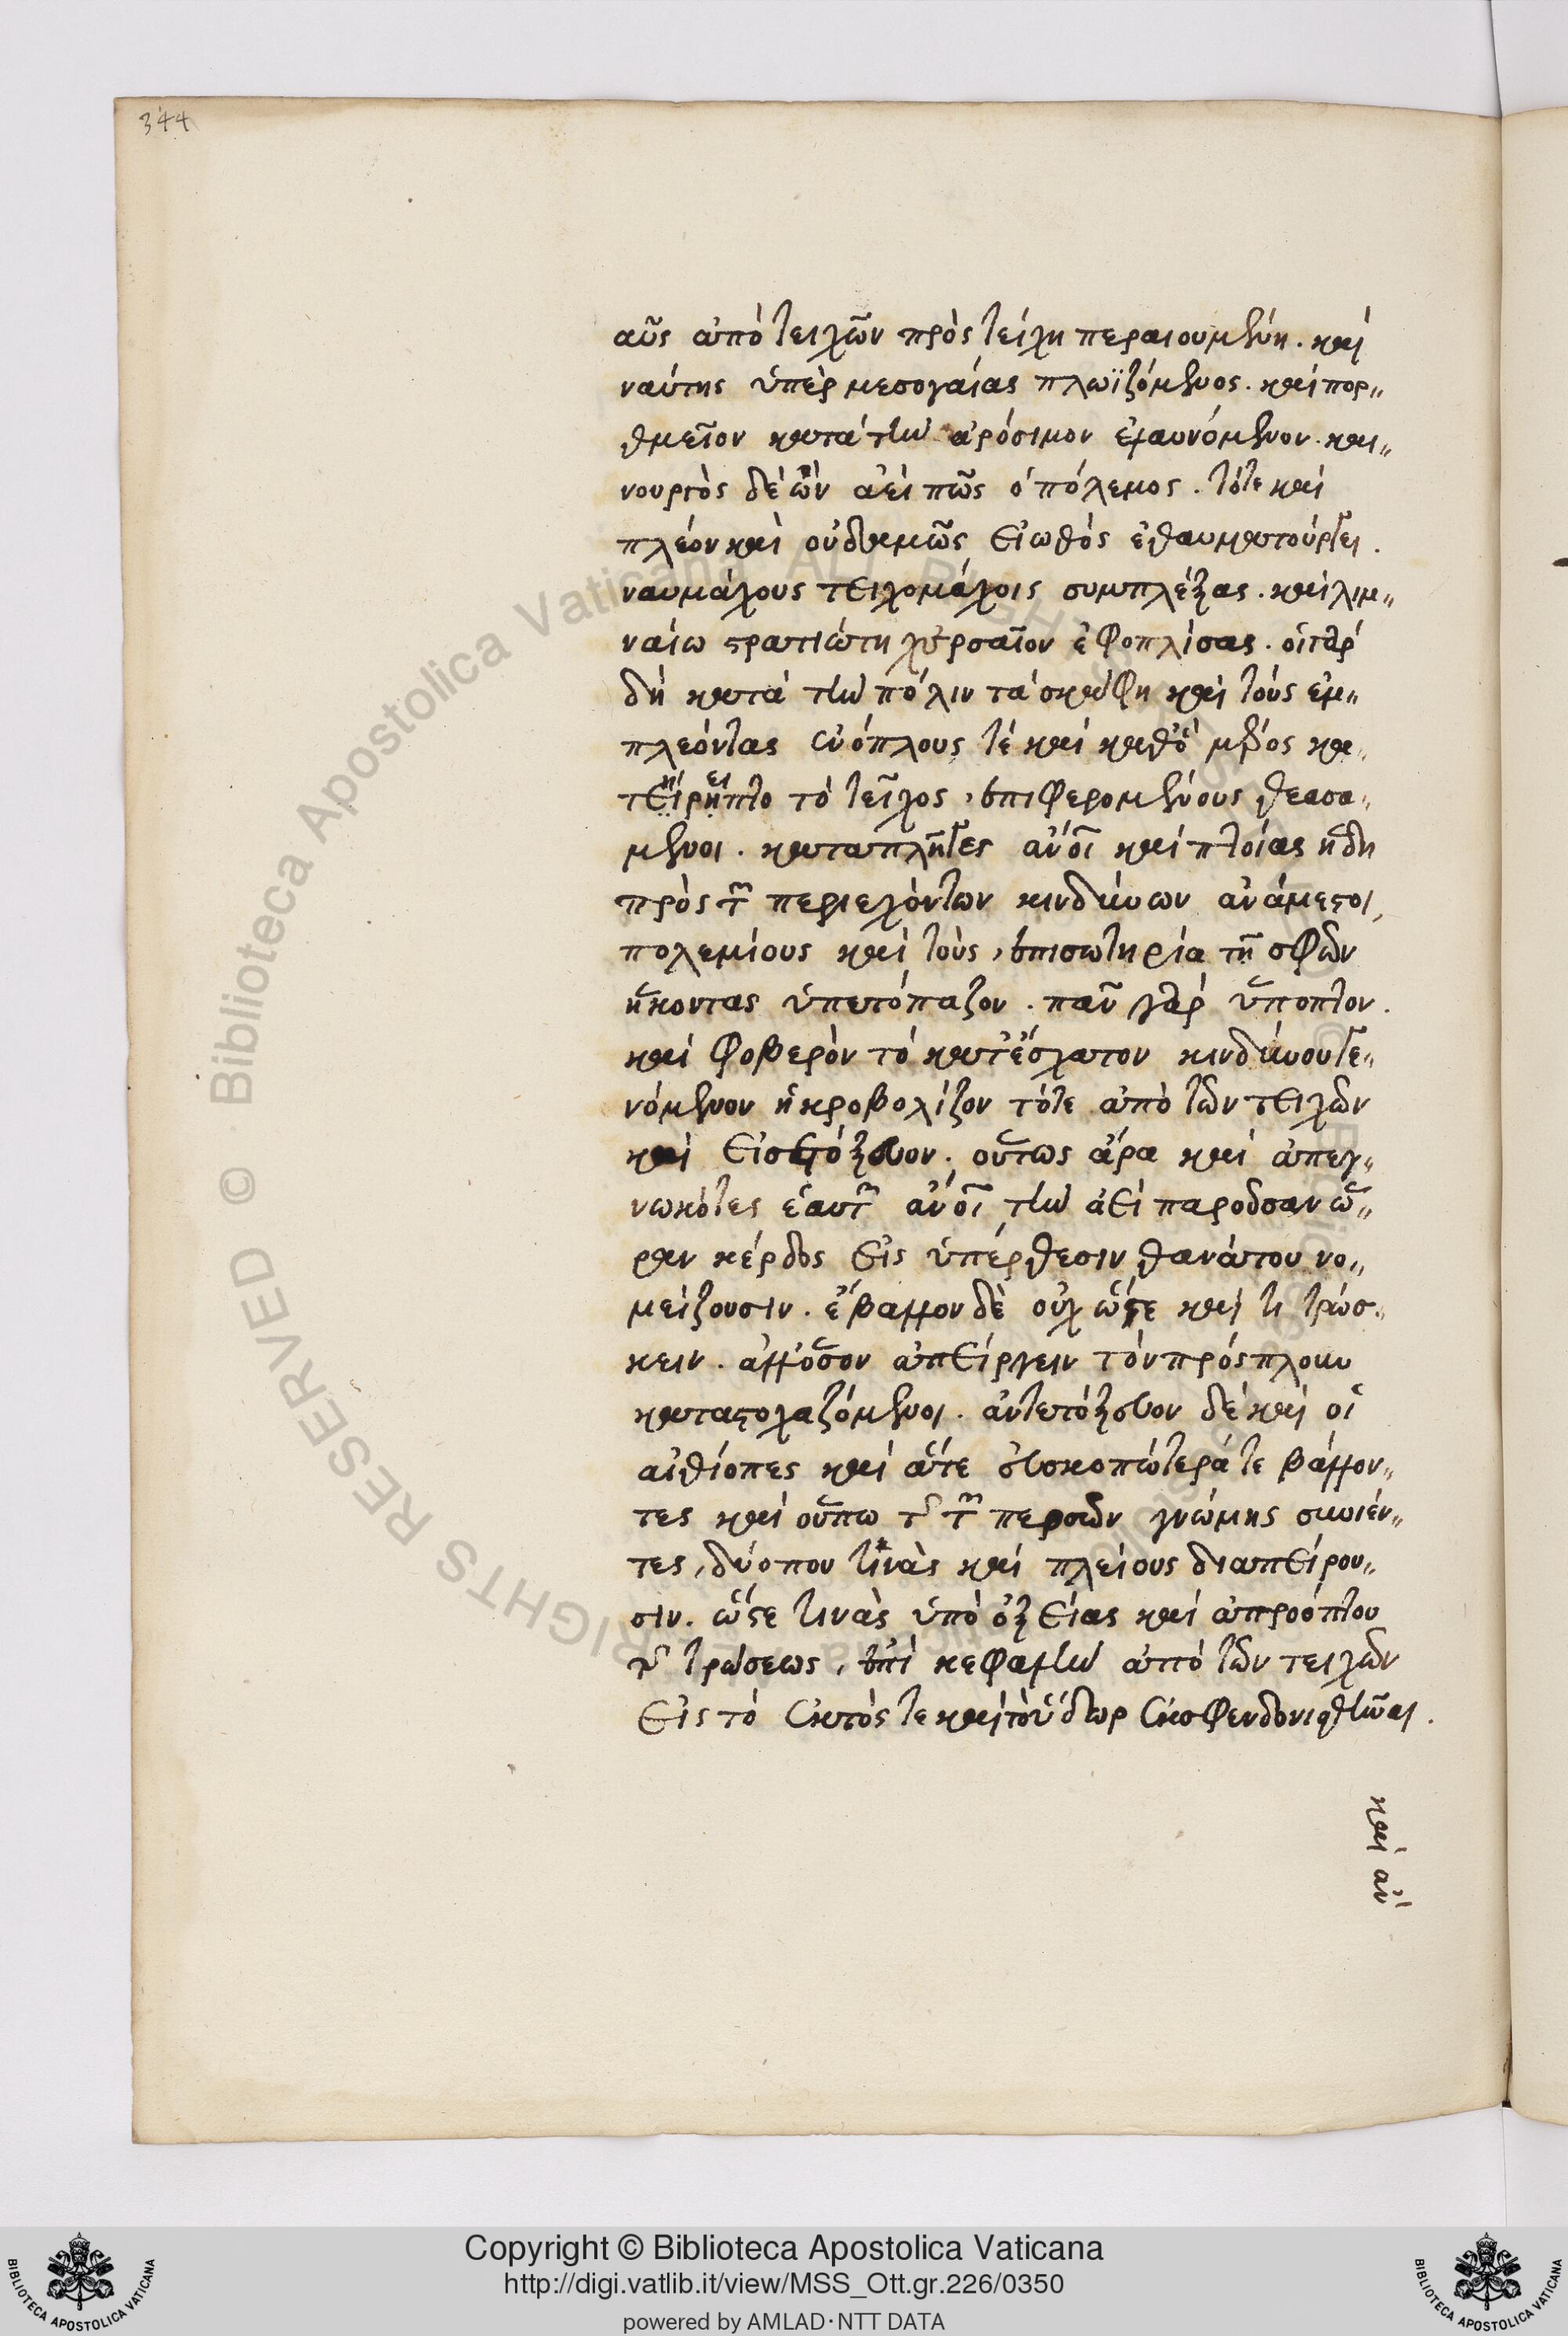 344
αῦς ἀπὸ τειχῶν πρὸς τείχη περαιουμένη. καὶ
ναύτης ὑπὲρ μεσογαίας πλωϊζόμενος. καὶ πορ„
θμεῖον κατὰ τὴν ἀρόσιμον ἐλαυνόμενον. και„
νουργὸς δὲ ὢν ἀεὶ πῶς ὁ πόλεμος. τότε καὶ
πλέον καὶ οὐδαμῶς εἰωθὸς ἐθαυματούργει.
ναυμάχους τειχομάχοις συμπλέξας. καὶ λιμ„
ναίω στρατιώτη χερσαῖον ἐφοπλίσας. οἱ γὰρ
δὴ κατὰ τὴν πόλιν τὰ σκάφη καὶ τοὺς ἐμ„
πλέοντας ἐνόπλους τὲ καὶ καθὸ μέρος κα„
τείρηπτο τὸ τεῖχος, ἐπιφερομένους θεασα„
μενοι. καταπλῆγες ἄνοι καὶ πτοίας ἤδη
πρὸς τῶν περιεχόντων κινδύνων ἀνάμεστοι,
πολεμίους καὶ τοὺς, ἐπισωτηρία τῆ σφῶν
ἥκοντας ὑπετόπαζον. πᾶν γὰρ ὕποπτον.
καὶ φοβερὸν τὸ κατ' ἔσχατον κινδύνου γε„
νόμενον ἠκροβολίζον τότε ἀπὸ τῶν τειχῶν
καὶ εἰσετόξευον. οὕτως ἄρα καὶ ἀπεγ„
νωκότες ἑαυτῶν ἄνοι τὴν ἀεὶ παροῦσαν ὥ„
ραν κέρδος εἰς ὑπέρθεσιν θανάτου νο„
μείζουσιν. ἔβαλλον δὲ οὐχ ὥστε καὶ τι τρώσ„
κειν. ἀλλ' ὅσον ἀπείργειν τὸν πρόσπλουν
καταστοχαζόμενοι. ἀντετόξευον δὲ καὶ οἱ
αἰθίοπες καὶ ἅτε εὐσκοπώτερά τε βάλλον„
τες καὶ οὔπω τῆς τῶν περσῶν γνώμης συνιέν„
τες, δύο που τινὰς καὶ πλείους διαπείρου„
σιν. ὥστε τινὰς ὑπὸ ὀξείας καὶ ἀπροόπτου
τῆς τρώσεως, ἐπὶ κεφαλὴν ἀπὸ τῶν τειχῶν
εἰς τὸ ἐκτός τε καὶ τὸ ὕδωρ ἐκσφενδονισθῆναι.
καὶ ἂν
Copyright © Biblioteca Apostolica Vaticana
http://digi.vatlib.it/view/MSS_Ott.gr.226/0350
powered by AMLAD·NTT DATA
BIBLIOTECA APOSTOLICA VATICANA
BIBLIOTECA APOSTOLICA VATICANA
Biblioteca Apostolica Vaticana ALL RIGHTS RESERVED ©